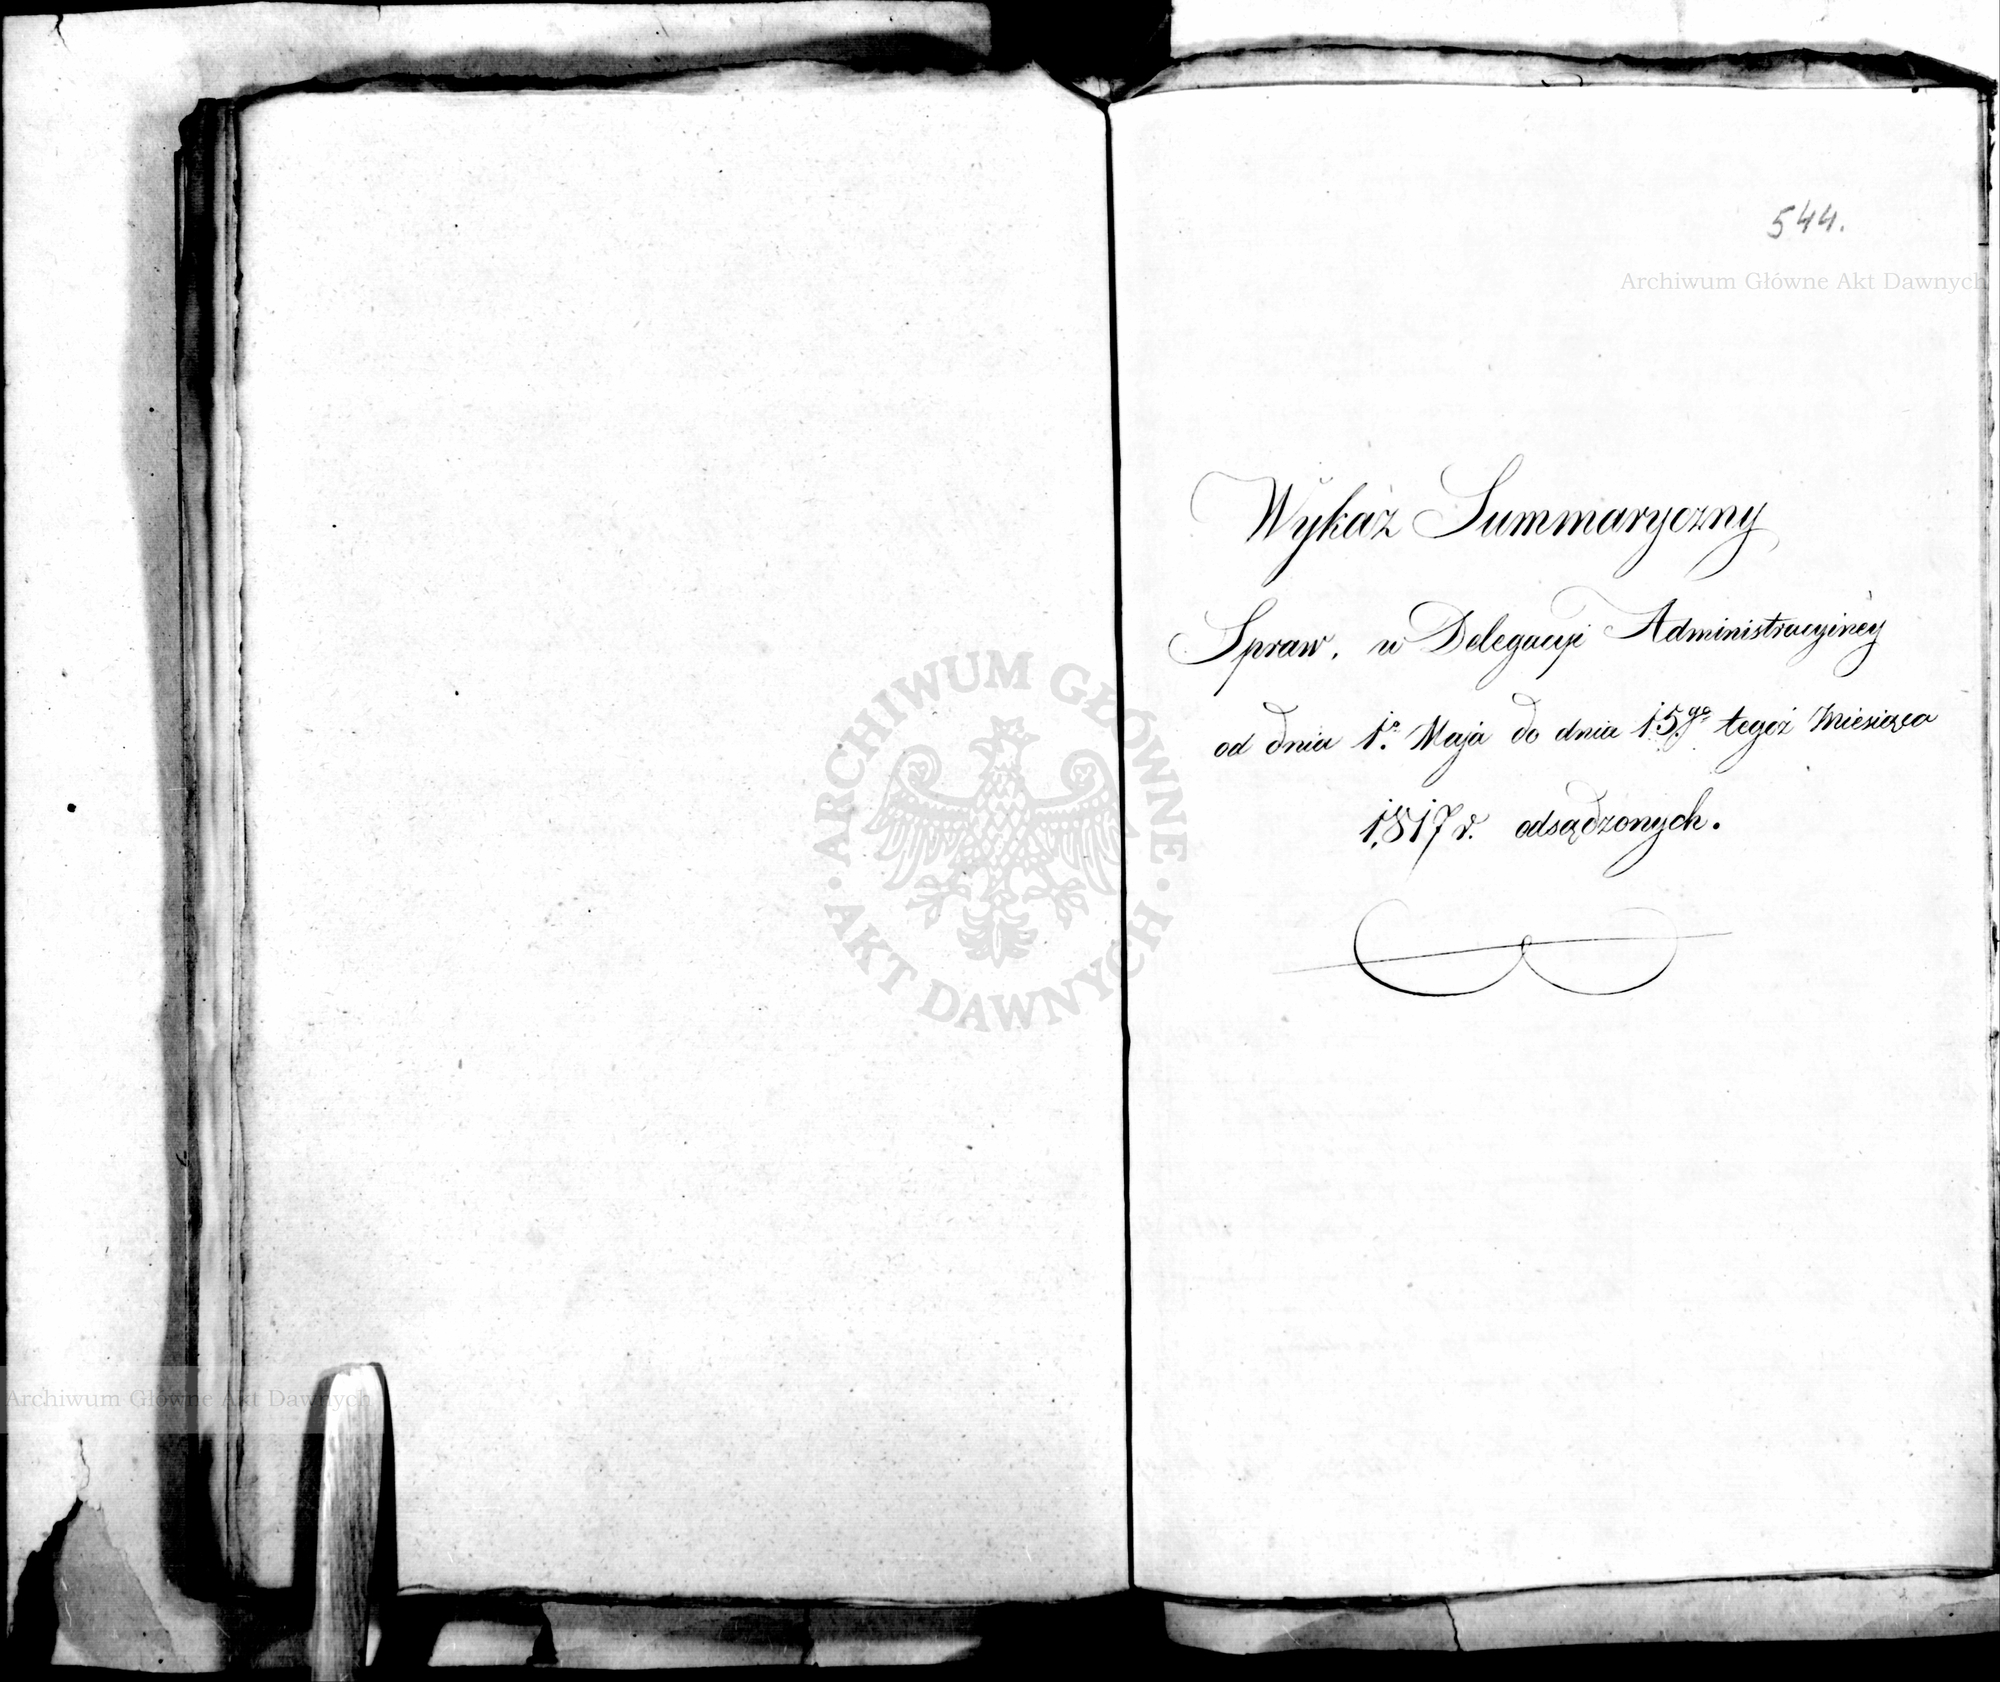 544.
Archiwum Główne Akt Dawnych
Wykaz Summaryczny
Spraw, w Delegacyi Administracyiney
od dnia 1º Maja do dnia 15go tegoż Miesiąca
1817 r. odsądzonych.
ARCHIWUM GŁÓWNE
AKT DAWNYCH
Archiwum Główne Akt Dawnych